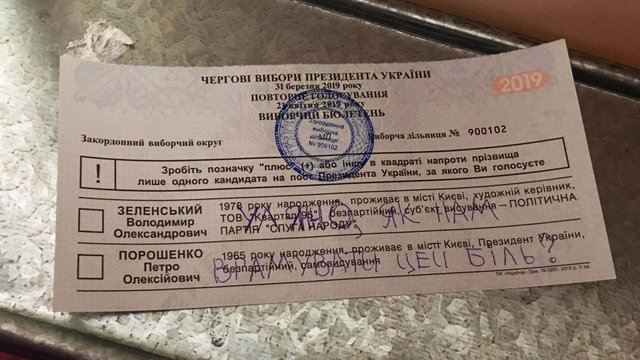 ЧЕРГОВІ ВИБОРИ ПРЕЗИДЕНТА УКРАЇНИ
31 березня 2019 року
2019
ПОВТОРНЕ ГОЛОСУВАННЯ
21 квітня 2019 року
ВИБОРЧИЙ БЮЛЕТЕНЬ
Закордонна
виборча
дільниця
№ 900102
Закордонний виборчий округ
Виборча дільниця № 900102
! Зробіть позначку "плюс" (+) або іншу в квадраті напроти прізвища
лише одного кандидата на пост Президента України, за якого Ви голосуєте
ЗЕЛЕНСЬКИЙ
Володимир
Олександрович
1978 року народження, проживає в місті Києві, художній керівник,
ТОВ "Квартал 95", безпартійний, суб'єкт висування – ПОЛІТИЧНА
ПАРТІЯ "СЛУГА НАРОДУ"
ЯК НАМ
ПОРОШЕНКО
Петро
Олексійович
1965 року народження, проживає в місті Києві, Президент України,
безпартійний, самовисування
ВГАМУВАТИ ЦЕЙ БІЛЬ?
ПК «Україна». Зам. 19-5201. 2019 р. ІІ кв.